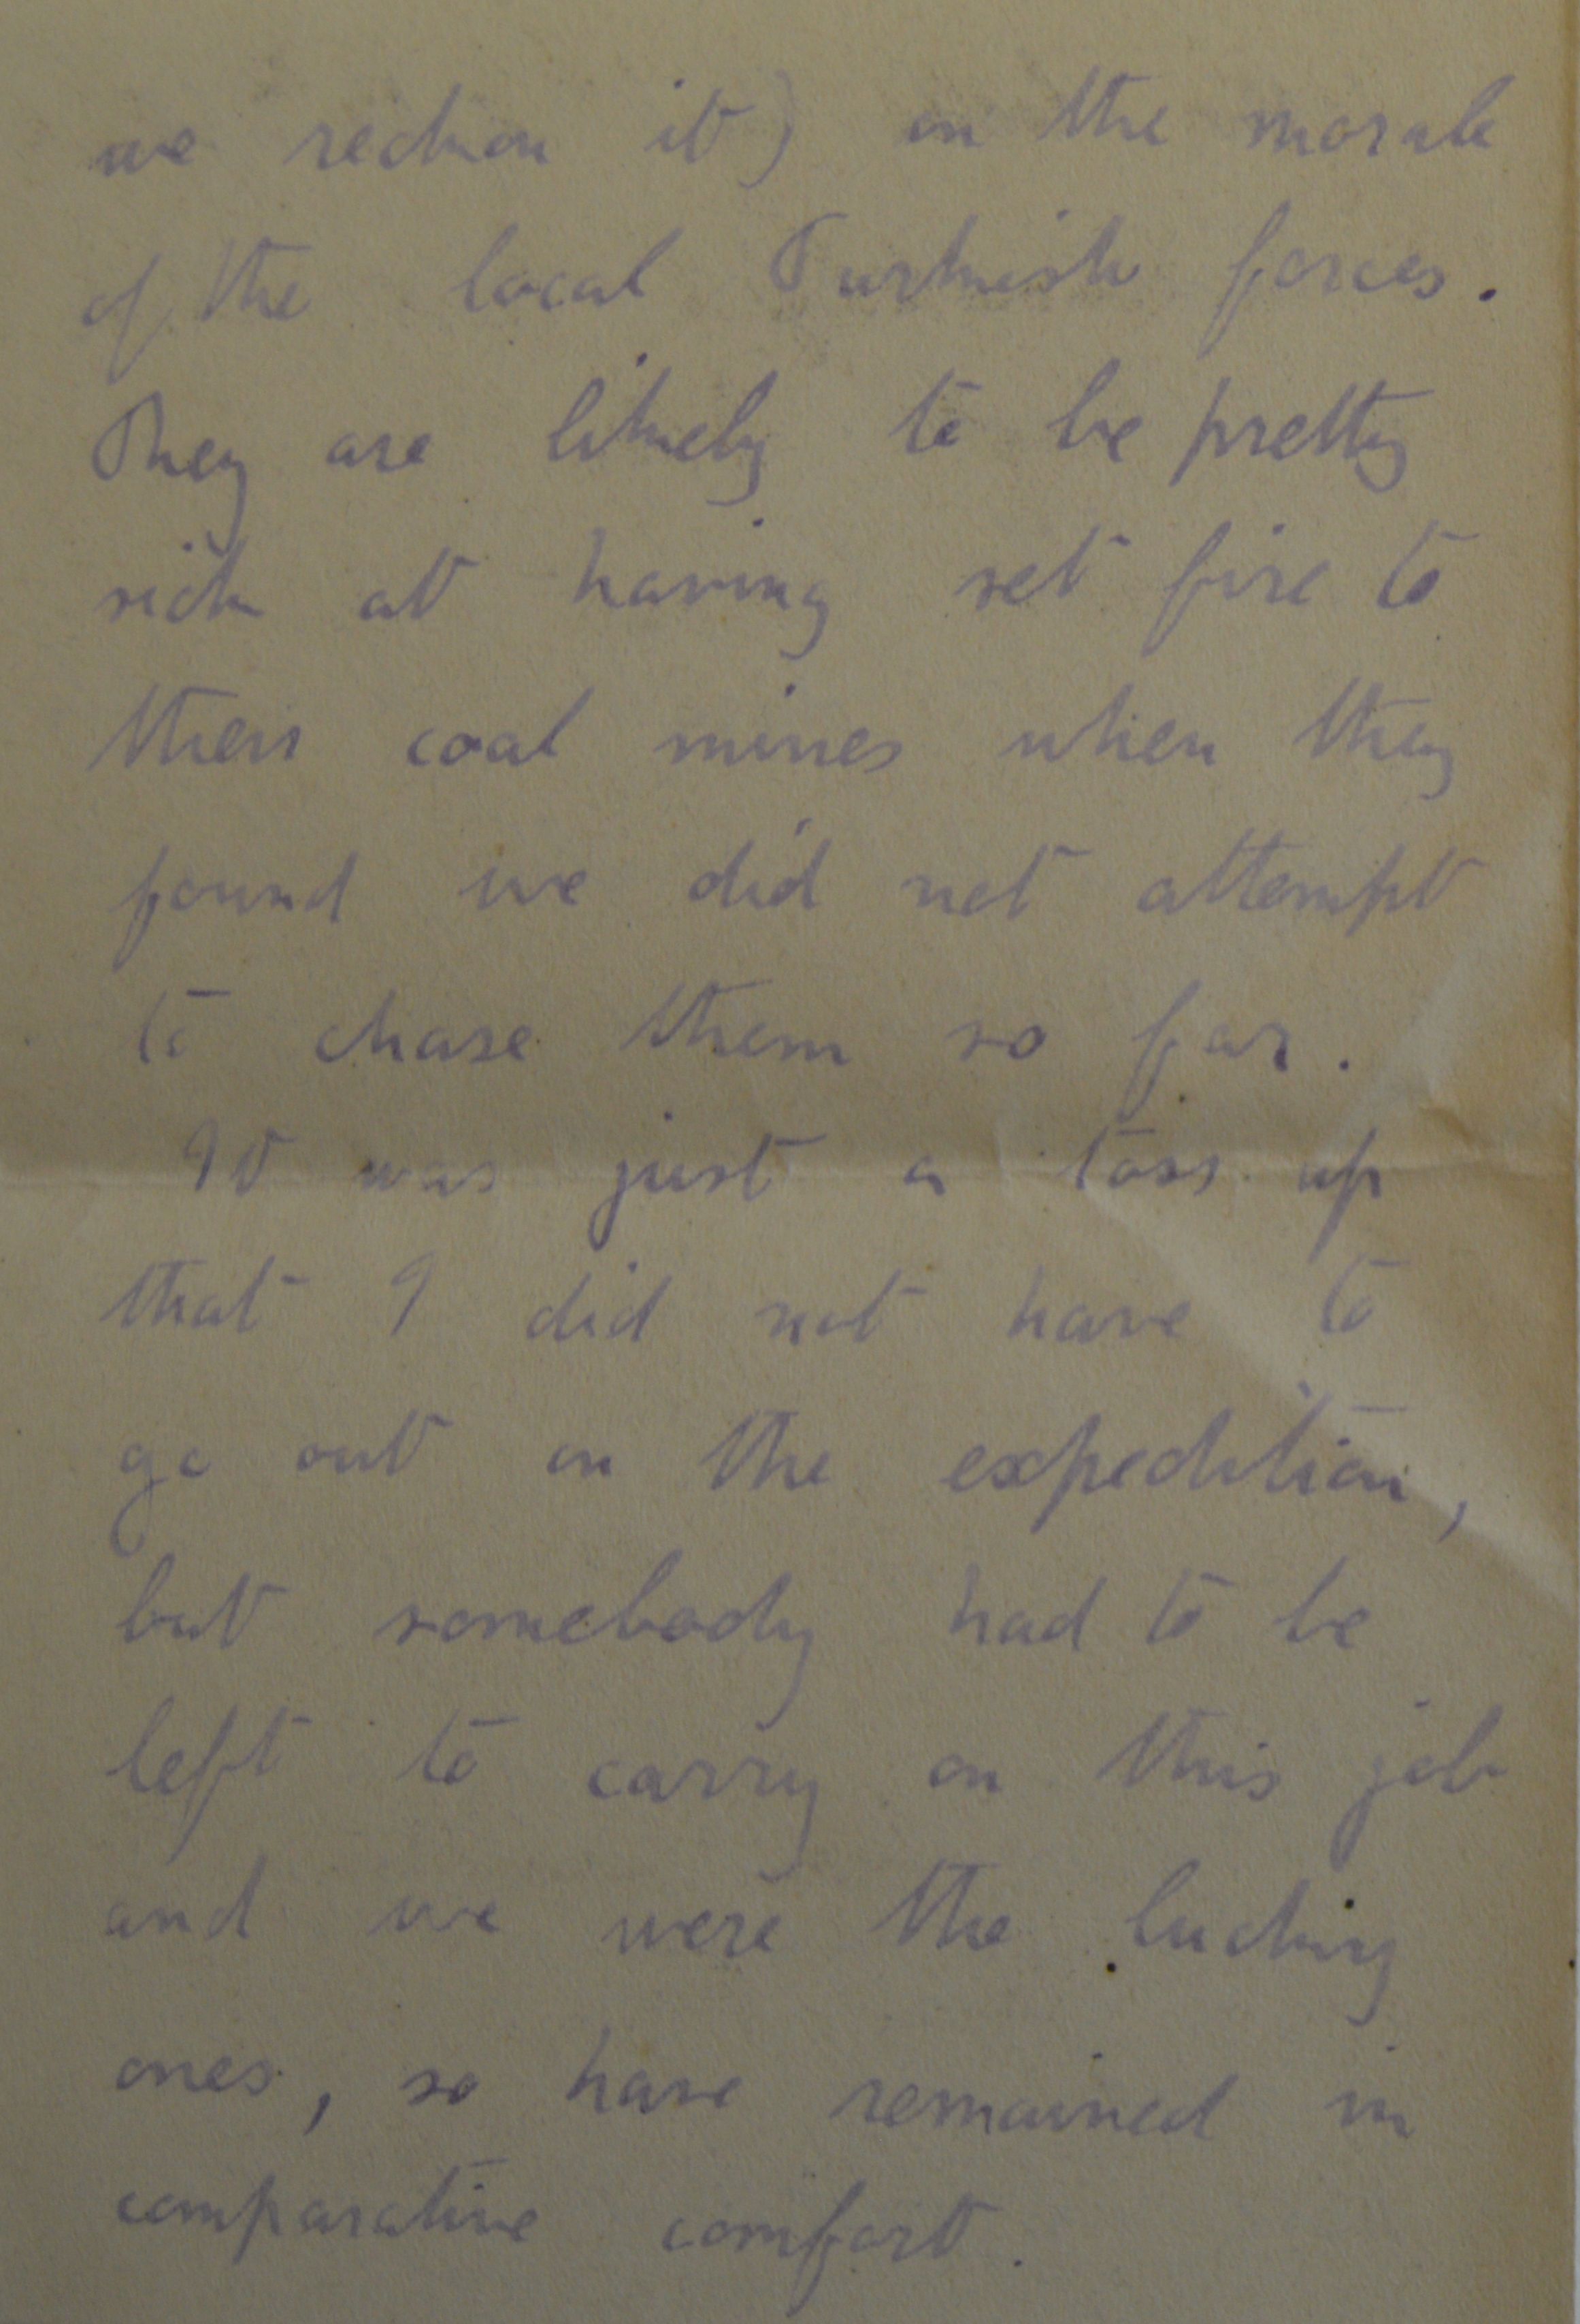 we reckon it) on the morale
of the local Turkish forces.
They are likely to be pretty
sick at having set fire to
their coal mines when they
found we did not attempt
to chase them so far.
It was just a toss up
that I did not have to
go out on the expedition,
but somebody had to be
left to carry on this job
and we were the lucky
ones, so have remained in
comparative comfort.